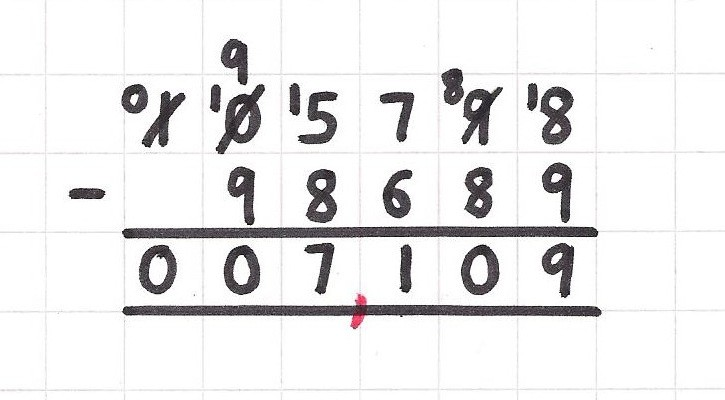 9
0 1 1 0 1 5 7 8 9 1 8
- 9 8 6 8 9
0 0 7 , 1 0 9